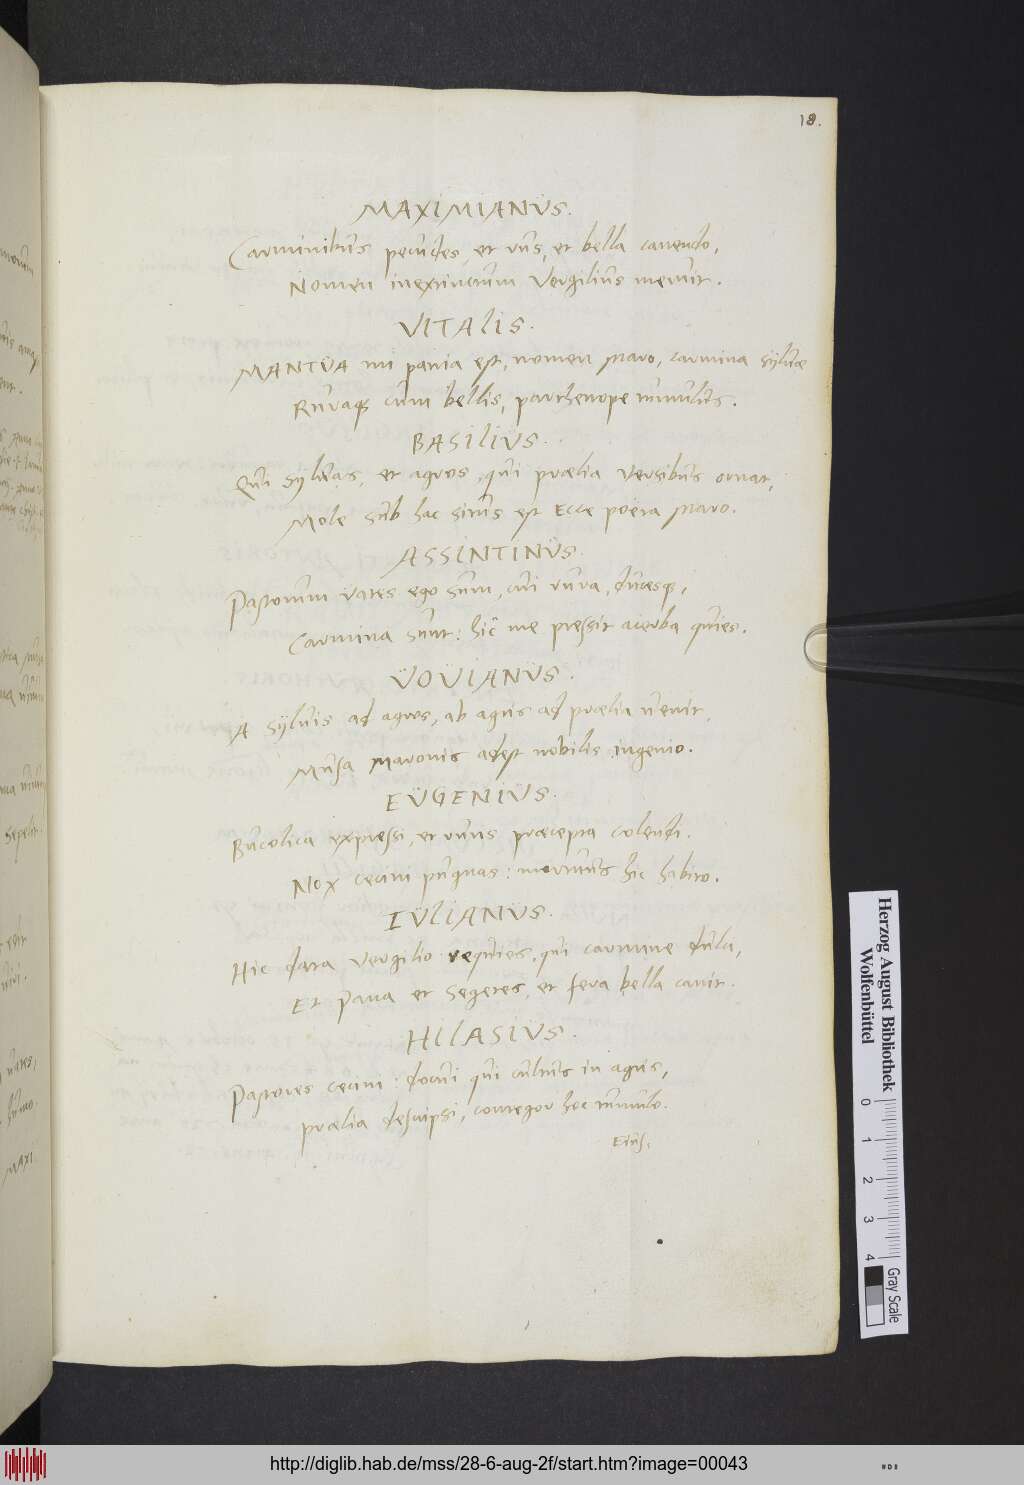 18.
MAXIMIANVS.
Carminibus pecudes, et rus, et bella canendo,
Nomen inextinctum Vergilius meruit.
VITALIS.
MANTVA mi patria est, nomen Maro, carmina sylvae
Ruraq; cum bellis, parthenope tumulus.
BASILIVS.
Qui sylvas, et agros, qui praelia versibus ornat,
Mole sub hac situs est Ecce poëta Maro.
ASSINTINVS.
Pastorum vates ego sum, cui rura, ducesq;,
Carmina sunt: hic me pressit acerba quies.
VOVIANVS.
A sylvis ad agros, ab agris ad praelia venit,
Musa Maronis adest nobilis ingenio.
EVGENIVS.
Bucolica expressi, et ruris praecepta colendi.
Mox cecini pugnas: mortuus hic habito.
IVLIANVS.
Hic data Vergilio requies, qui carmine dulci,
Et Pana et segetes, et fera bella canit.
HILASIVS.
Pastores cecini: docui qui cultus in agris,
praelia descripsi, contegor hoc tumulo.
Eius.
Herzog August Bibliothek
Wolfenbüttel
0 1 2 3 4
Gray Scale
http://diglib.hab.de/mss/28-6-aug-2f/start.htm?image=00043